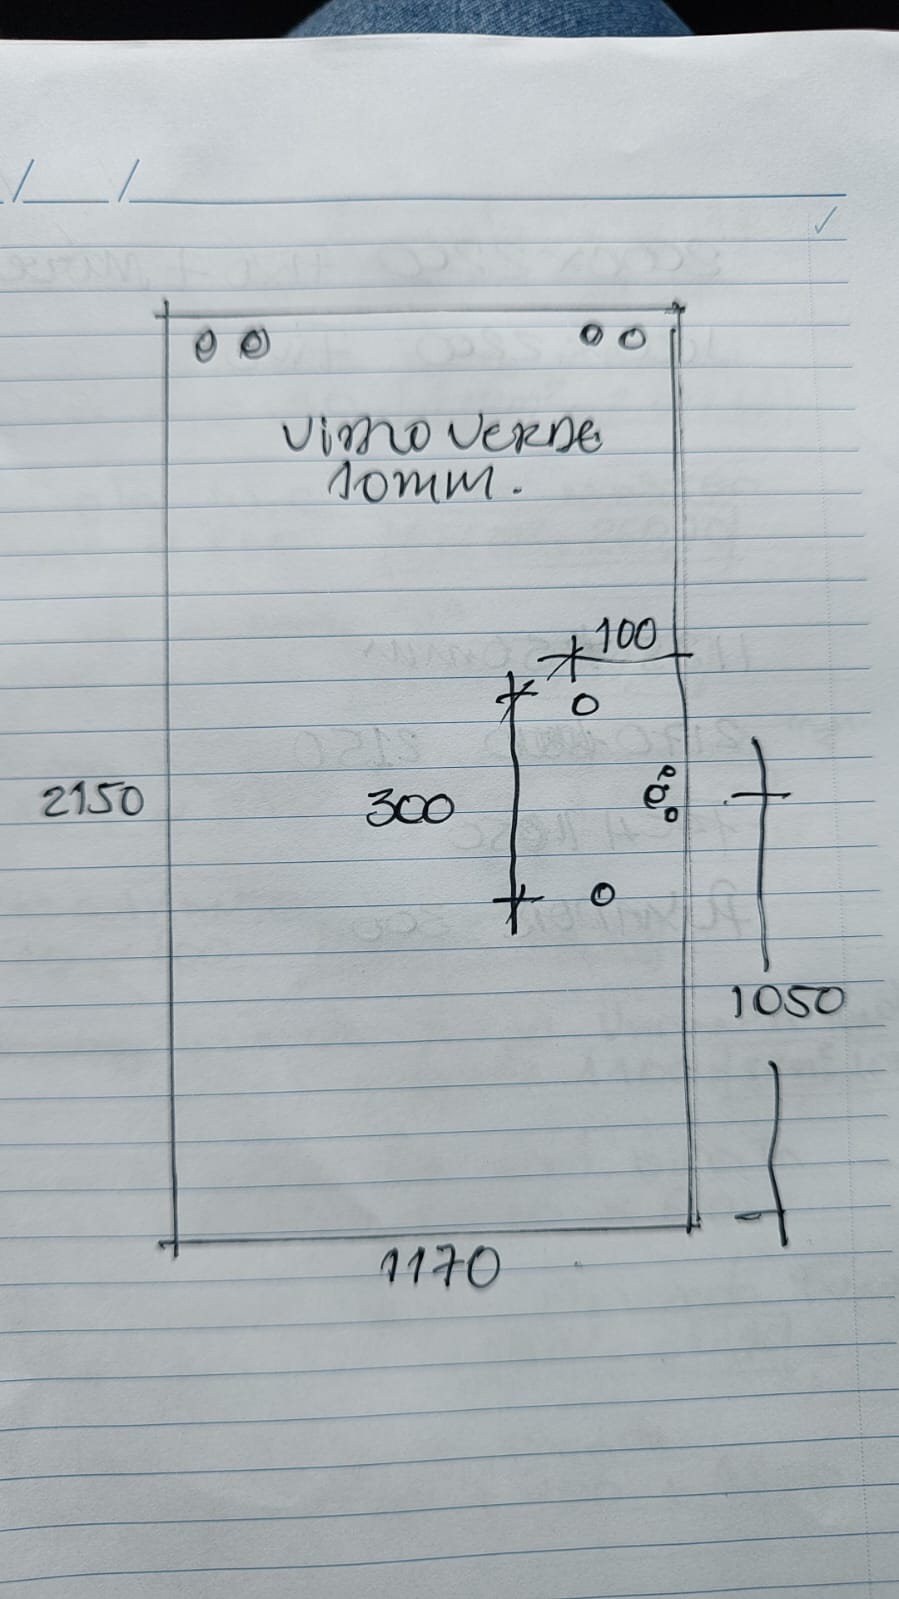 Vidro Verde
10mm.
100
300
2150
1050
1170